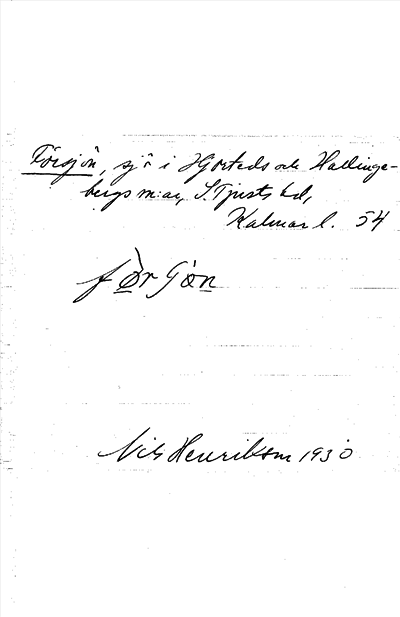 Försjön, sjö i Hjorteds och Hallinge-
bergs m:ar, S. Tjusts hd,
Kalmar l. 54
Nils Henriksson 1930